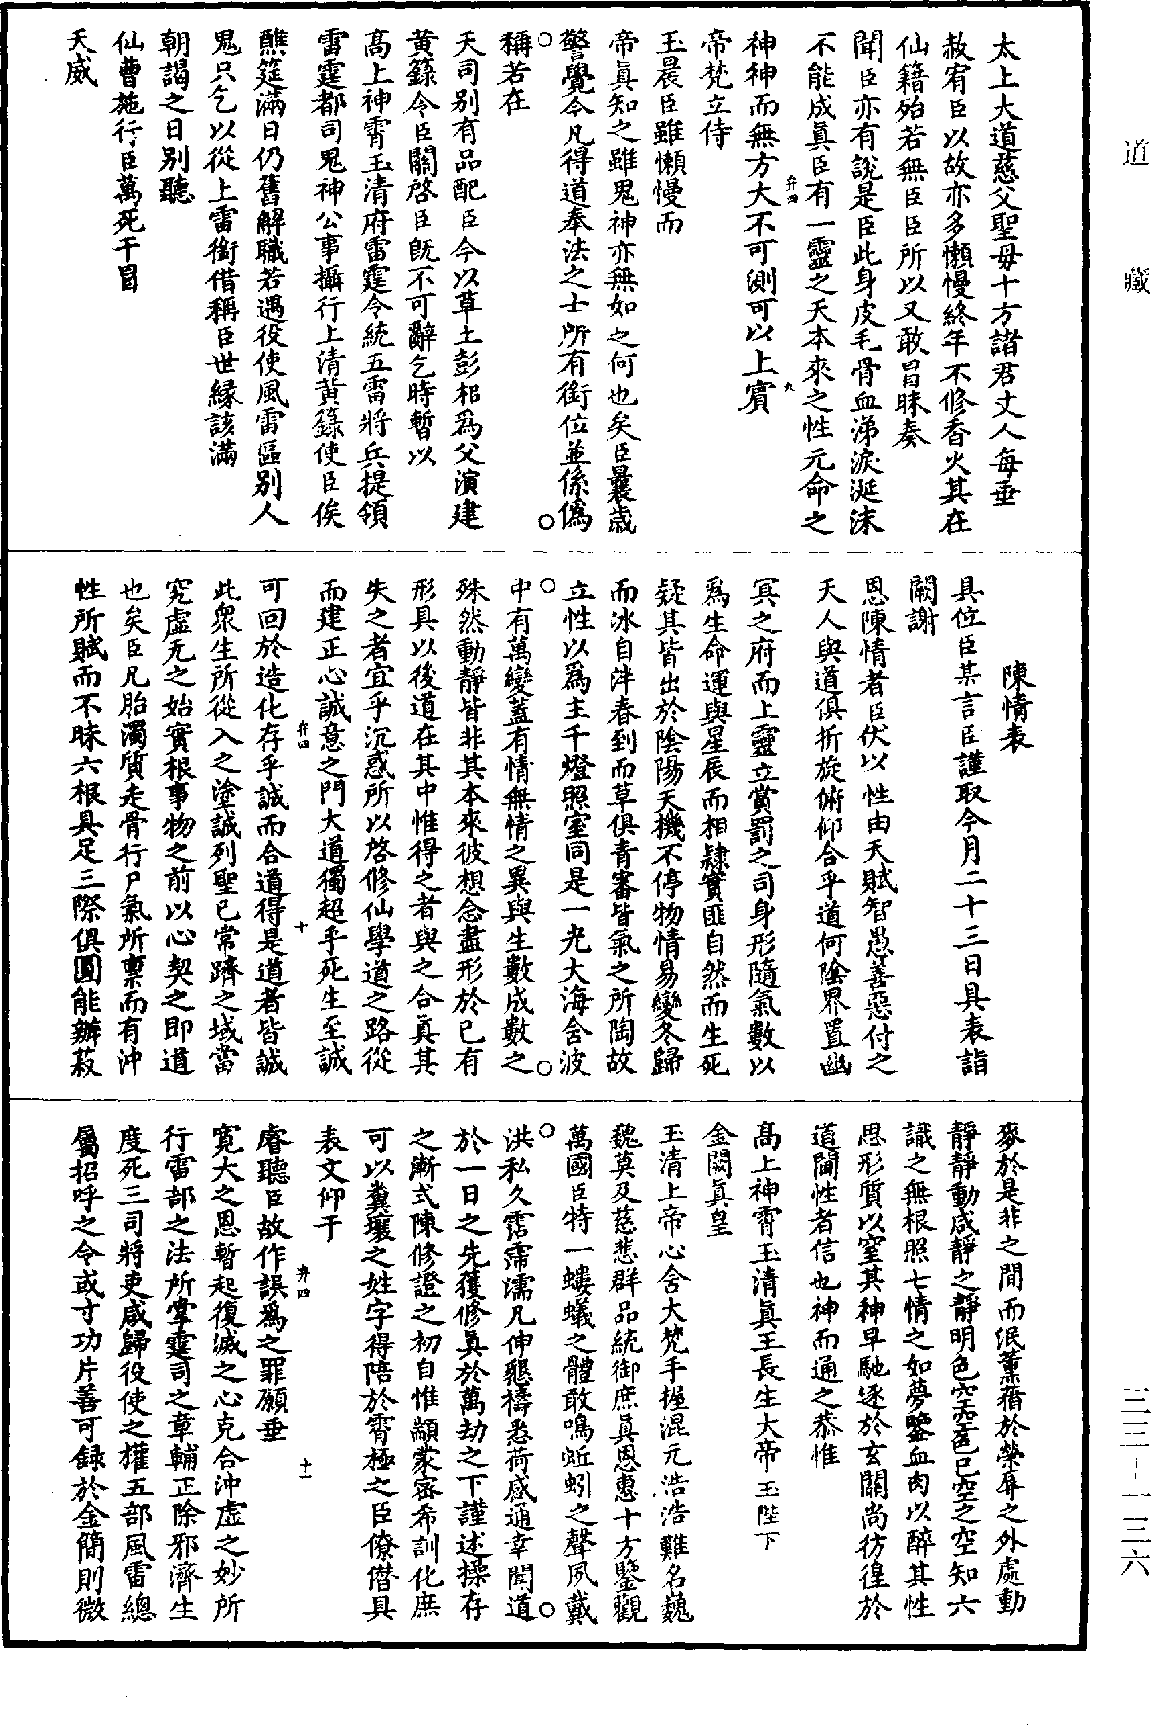 道藏
太上大道慈父聖母十方諸君丈人每垂
赦宥臣以故亦多懶慢終年不修香火其在
仙籍殆若無臣臣所以又敢冒昧奏
聞臣亦有說是臣此身皮毛骨血涕淚涎沫
不能成眞臣有一靈之天本來之性元命之
神神而無方大不可測可以上賓
弁四
九
帝梵立侍
玉晨臣雖懶慢而
帝眞知之雖鬼神亦無如之何也矣臣曩歲
警覺今凡得道奉法之士所有銜位並係僞
稱若在
天司别有品配臣今以草土彭耜爲父演建
黄籙令臣關啓臣既不可辭乞時暫以
高上神霄玉清府雷霆令統五雷將兵提領
雷霆都司鬼神公事攝行上清黄籙使臣俟
醮筵滿日仍舊解職若遇役使風雷區别人
鬼只乞以從上雷銜借稱臣世緣該滿
朝謁之日别聽
仙曹施行臣萬死干冒
天威
陳情表
具位臣某言臣謹取今月二十三日具表詣
闕謝
恩陳情者臣伏以性由天賦智愚善惡付之
天人與道俱折旋俯仰合乎道何陰界置幽
冥之府而上靈立賞罰之司身形隨氣數以
爲生命運與星辰而相隷實匪自然而生死
疑其皆出於陰陽天機不停物情易變冬歸
而冰自泮春到而草俱青審皆氣之所陶故
立性以爲主千燈照室同是一光大海舍波
中有萬變蓋有情無情之異與生數成數之
殊然動靜皆非其本來彼想念盡形於已有
形具以後道在其中惟得之者與之合眞其
失之者宜乎沉惑所以啓修仙學道之路從
而建正心誠意之門大道獨超乎死生至誠
可回於造化存乎誠而合道得是道者皆誠
弁四
十
此衆生所從入之塗誠列聖已常躋之域當
究虛无之始實根事物之前以心契之即道
也矣臣凡胎濁質走骨行尸氣所禀而有沖
性所賦而不昧六根具足三際俱圓能辦菽
麥於是非之間而泯薰蕕於榮辱之外處動
靜靜動咸靜之靜明色空空色已空之空知六
識之無根照七情之如夢鑒血肉以醉其性
思形質以窒其神早馳逐於玄關尚彷徨於
道閫性者信也神而通之恭惟
高上神霄玉清眞王長生大帝玉陛下
金闕眞皇
玉清上帝心含大梵手握混元浩浩難名巍
巍莫及慈悲群品統御庶眞恩惠十方鑒觀
萬國臣特一螻蟻之體敢鳴蚯蚓之聲夙戴
洪私久霑霈濡凡伸懇禱悉荷感通幸聞道
於一日之先獲修眞於萬劫之下謹述操存
之漸式陳修證之初自惟顓蒙密希訓化庶
可以糞壤之姓字得陪於霄極之臣僚僭具
表文仰干
睿聽臣故作誤爲之罪願垂
弁四
十一
寛大之恩暫起復滅之心克合沖虛之妙所
行雷部之法所掌霆司之章輔正除邪濟生
度死三司將吏咸歸役使之權五部風雷總
屬招呼之令或寸功片善可録於金簡則微
三三-一三六